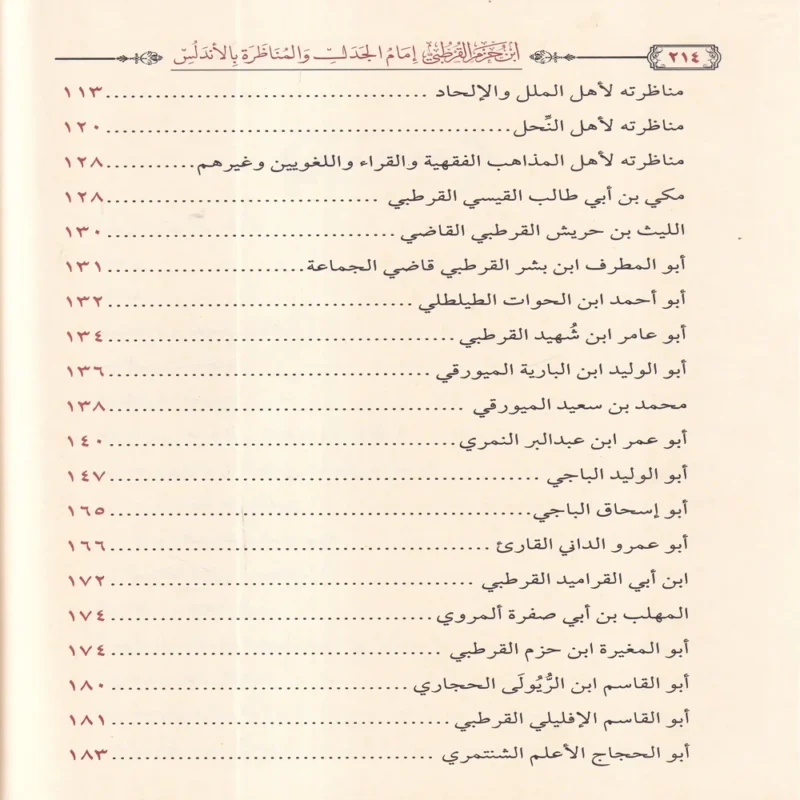 ٢١٤ ابن حزم القرطبي إمام الجدل والمناظرة بالأندلس
مناظرته لأهل الملل والإلحاد ........ ١١٣
مناظرته لأهل النِّحل ........ ١٢٠
مناظرته لأهل المذاهب الفقهية والقراء واللغويين وغيرهم ........ ١٢٨
مكي بن أبي طالب القيسي القرطبي ........ ١٢٨
الليث بن حريش القرطبي القاضي ........ ١٣٠
أبو المطرف ابن بشر القرطبي قاضي الجماعة ........ ١٣١
أبو أحمد ابن الحوات الطيلطلي ........ ١٣٢
أبو عامر ابن شُهيد القرطبي ........ ١٣٤
أبو الوليد ابن البارية الميورقي ........ ١٣٦
محمد بن سعيد الميورقي ........ ١٣٨
أبو عمر ابن عبدالبر النمري ........ ١٤٠
أبو الوليد الباجي ........ ١٤٧
أبو إسحاق الباجي ........ ١٦٥
أبو عمرو الداني القارئ ........ ١٦٦
ابن أبي القراميد القرطبي ........ ١٧٢
المهلب بن أبي صفرة ألمروي ........ ١٧٤
أبو المغيرة ابن حزم القرطبي ........ ١٧٤
أبو القاسم ابن الرُّيُولَى الحجاري ........ ١٨٠
أبو القاسم الإفليلي القرطبي ........ ١٨١
أبو الحجاج الأعلم الشنتمري ........ ١٨٣